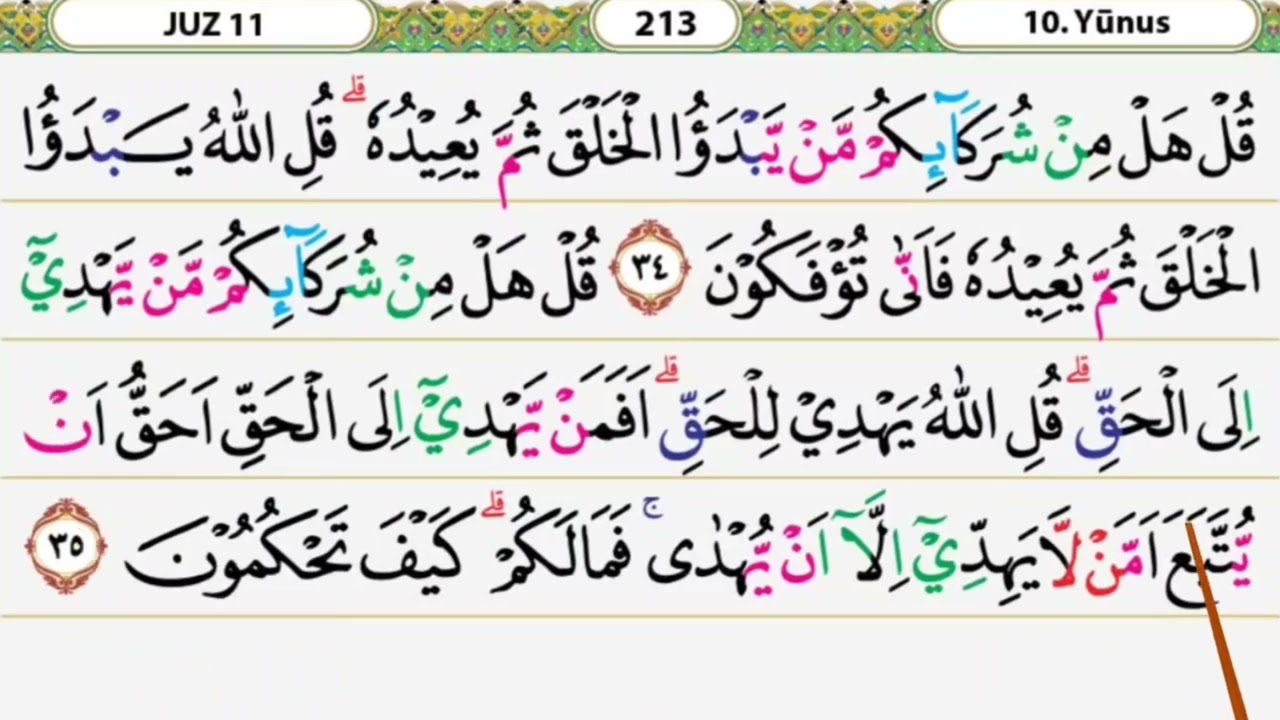 JUZ 11 213 10. Yūnus
قُلْ هَلْ مِنْ شُرَكَآىِٕكُمْ مَّنْ يَّبْدَؤُا الْخَلْقَ ثُمَّ يُعِيْدُهٗ ۗ قُلِ اللّٰهُ يَبْدَؤُا
الْخَلْقَ ثُمَّ يُعِيْدُهٗ فَاَنّٰى تُؤْفَكُوْنَ ٣٤ قُلْ هَلْ مِنْ شُرَكَآىِٕكُمْ مَّنْ يَّهْدِيْٓ
اِلَى الْحَقِّ ۗ قُلِ اللّٰهُ يَهْدِيْ لِلْحَقِّ ۗ اَفَمَنْ يَّهْدِيْٓ اِلَى الْحَقِّ اَحَقُّ اَنْ
يُّتَّبَعَ اَمَّنْ لَّا يَهِدِّيْٓ اِلَّآ اَنْ يُّهْدٰى ۚ فَمَا لَكُمْ ۗ كَيْفَ تَحْكُمُوْنَ ٣٥